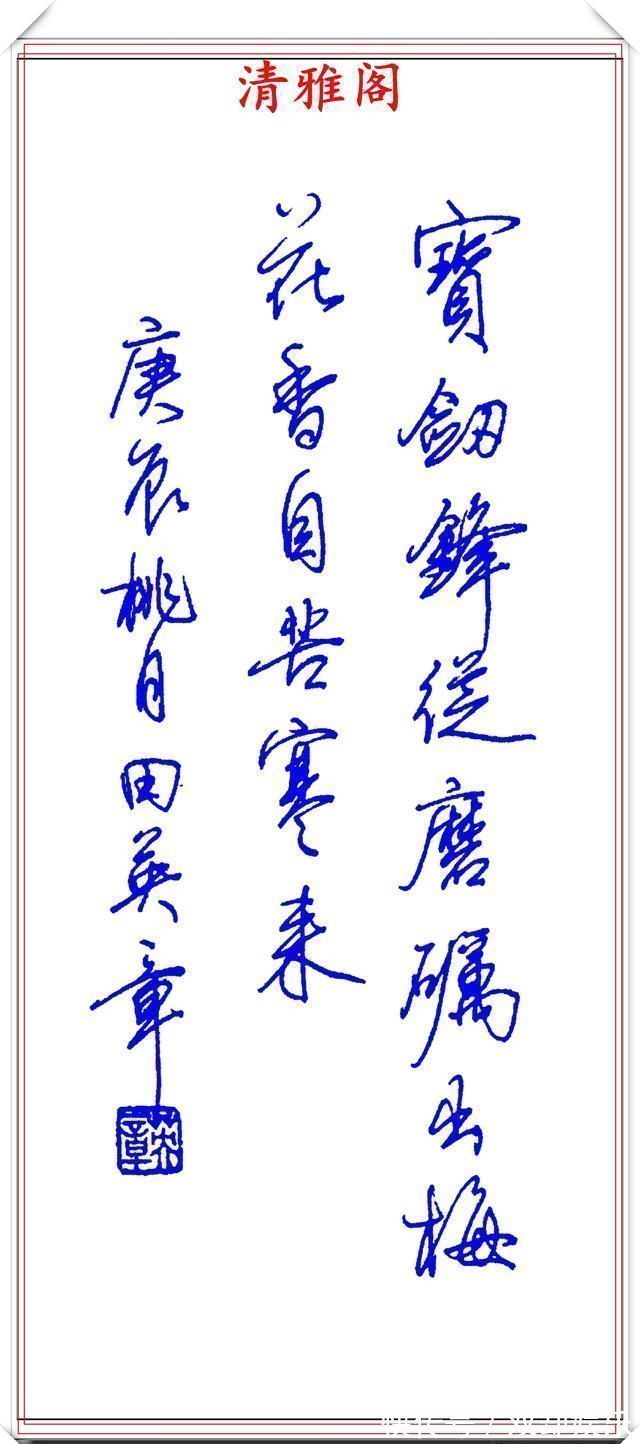 清雅阁
寶劒鋒從磨礪出梅
花香自苦寒来
庚辰桃月田英章